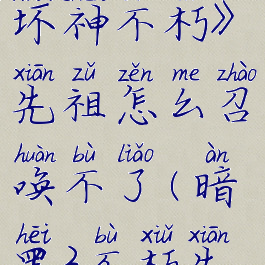 坏神不朽》
xiān zǔ zěn me zhào
先祖怎么召
huàn bù liǎo àn
唤不了(暗
hēi bù xiǔ xiān